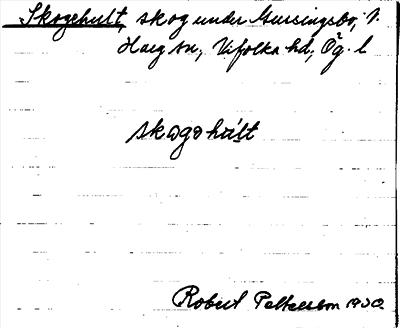 Skogehult, skog under Gursingsbo, V.
Harg sn, Vifolka hd, Ög. l
skogahùlt
Robert Pettersson 1930.